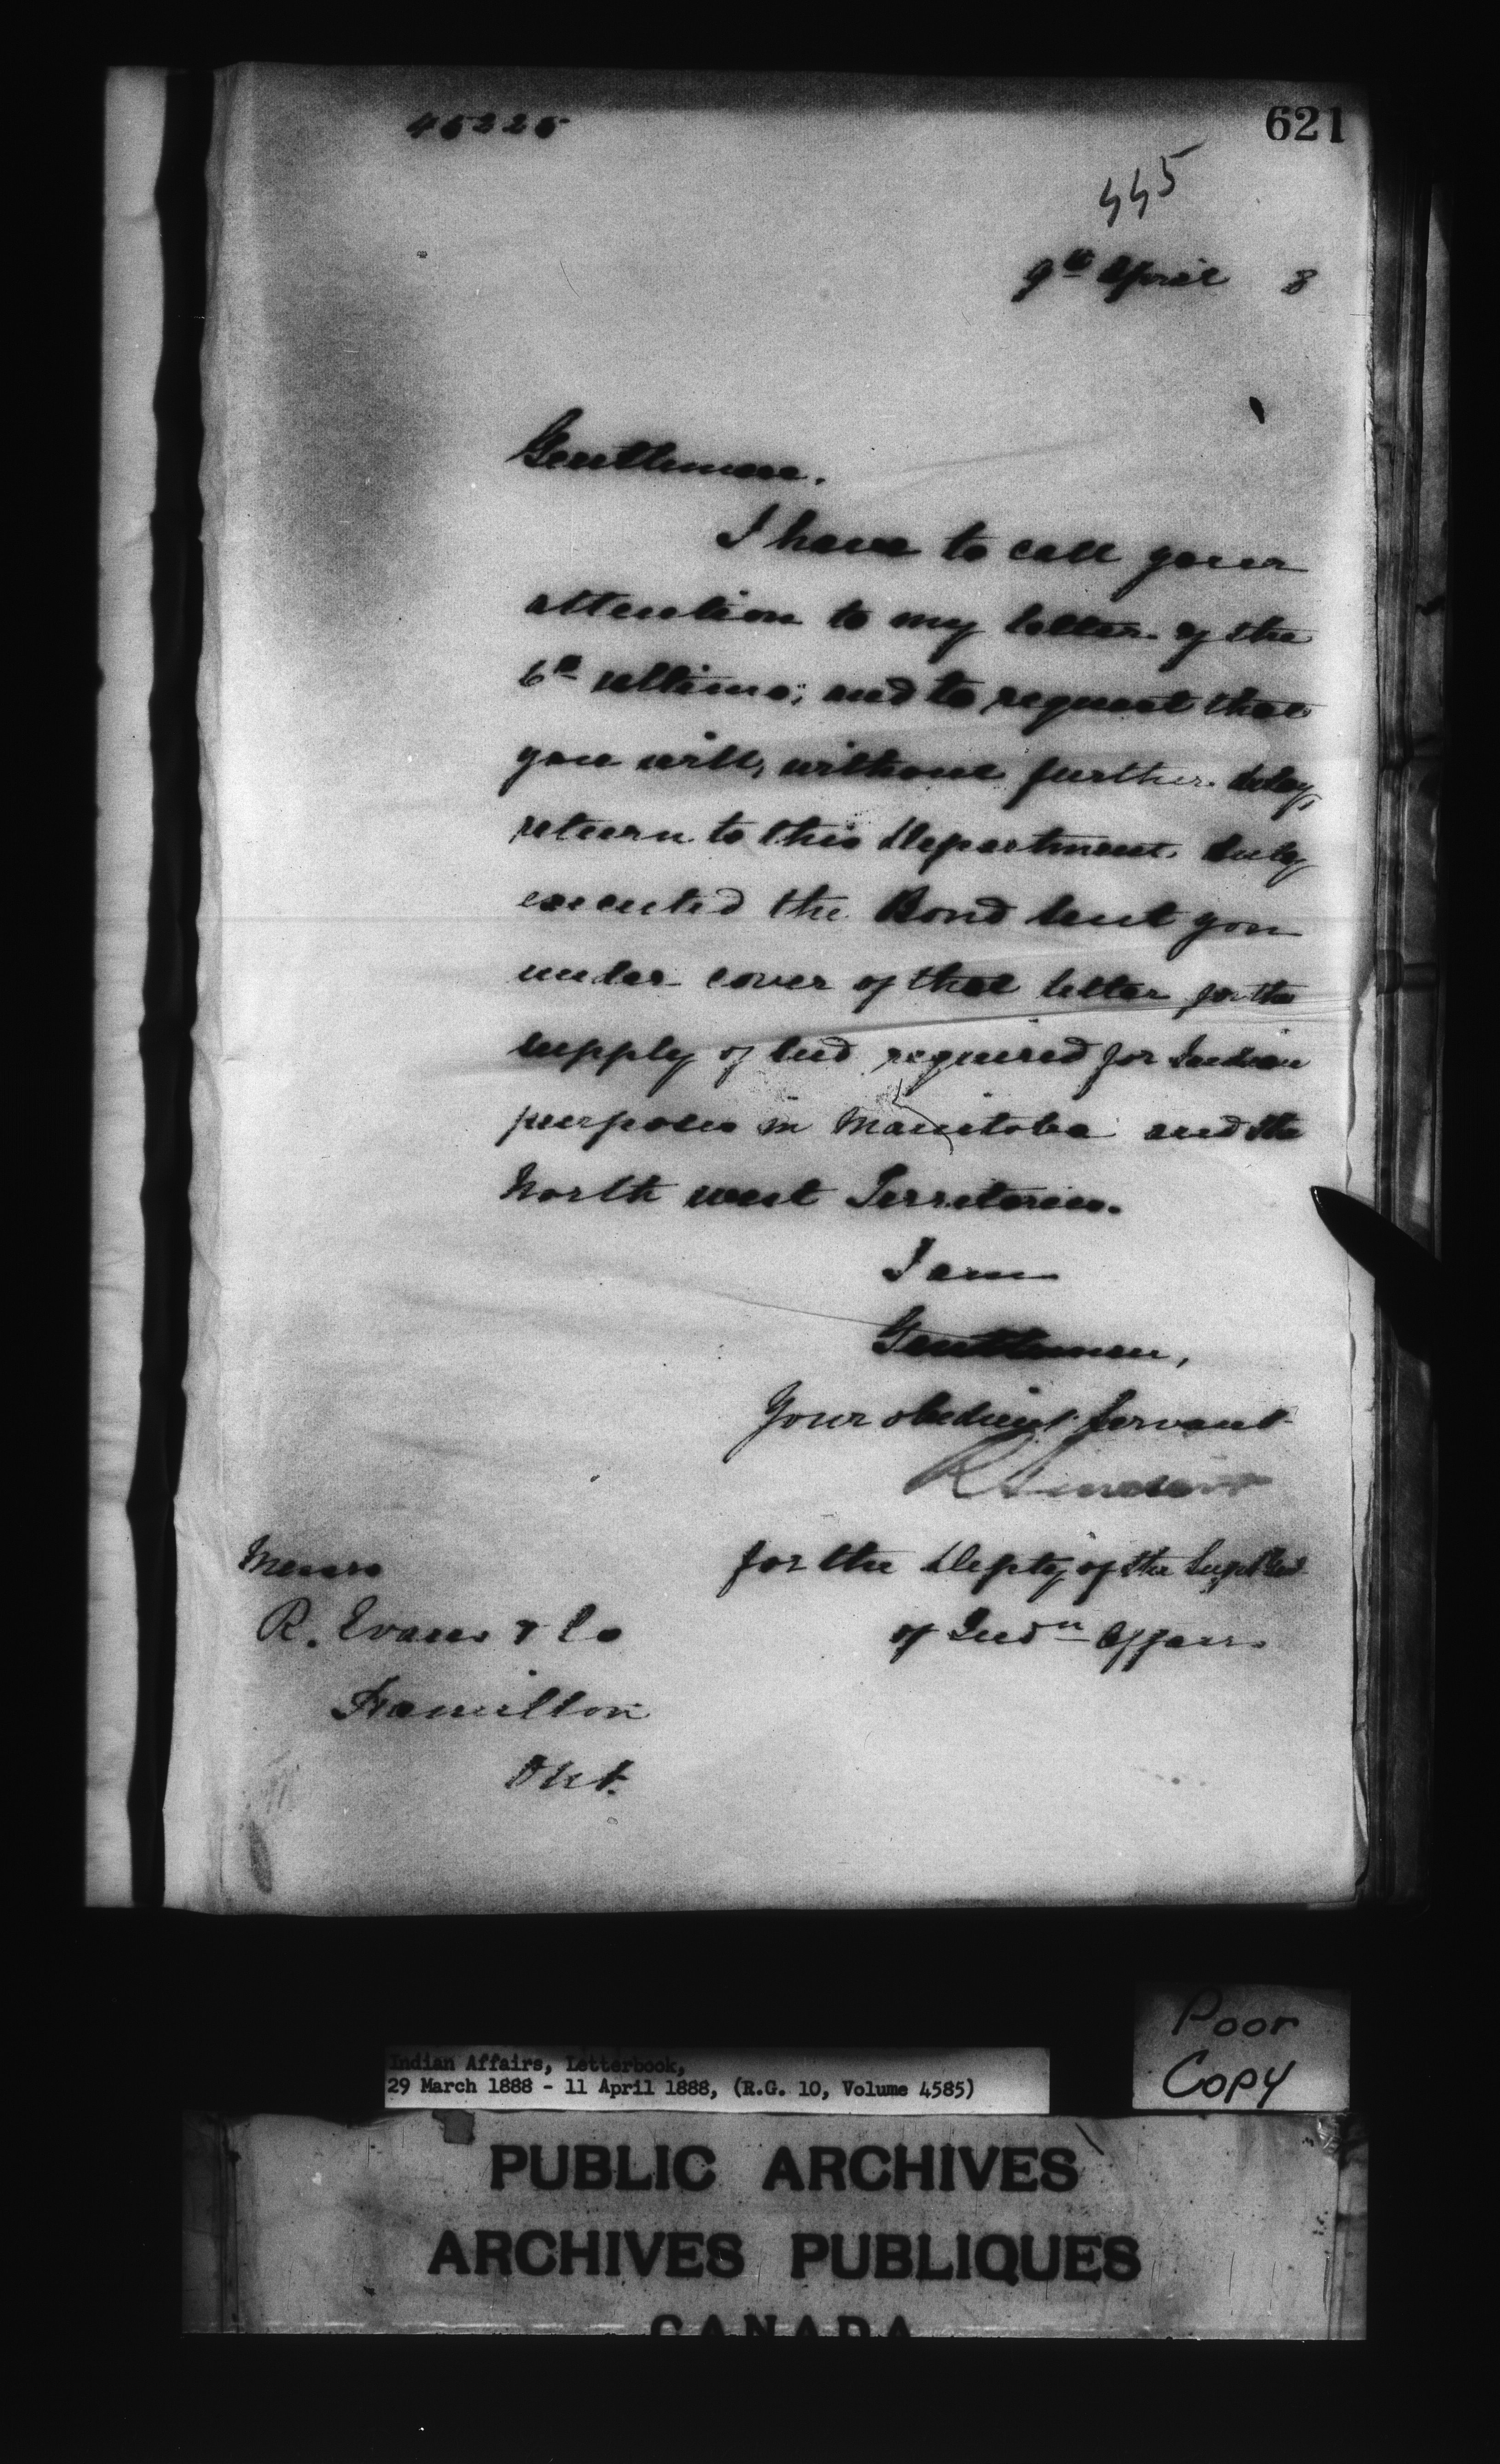 45225
621
445
9th April 8
Gentlemen.
I have to call your
attention to my letter of the
6th ultimo; and to request that
you will, without further delay,
return to this Department duly
executed the Bond sent you
under cover of that letter for the
supply of seed required for Indian
purposes in Manitoba and the
North west Territories.
I am
Gentlemen,
Your obedient servant
R Sinclair
for the Depty of the Supt Gen
of Indn Affairs
Messrs
R. Evans & Co
Hamilton
Ont.
Poor
Copy
Indian Affairs, Letterbook,
29 March 1888 - 11 April 1888, (R.G. 10, Volume 4585)
PUBLIC ARCHIVES
ARCHIVES PUBLIQUES
CANADA